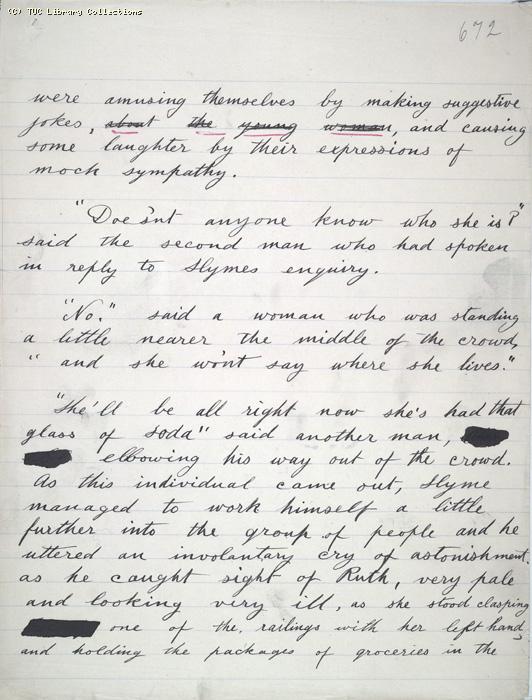 (C) TUC Library Collections
672
were amusing themselves by making suggestive
jokes, about the young woman, and causing
some laughter by their expressions of
mock sympathy.
"Does'nt anyone know who she is?"
said the second man who had spoken
in reply to Slymes enquiry.
"No." said a woman who was standing
a little nearer the middle of the crowd,
"and she wont say where she lives."
"She'll be all right now she's had that
glass of soda" said another man,
elbowing his way out of the crowd.
As this individual came out, Slyme
managed to work himself a little
further into the group of people and he
uttered an involantary cry of astonishment
as he caught sight of Ruth, very pale
and looking very ill, as she stood clasping
one of the railings with her left hand,
and holding the packages of groceries in the